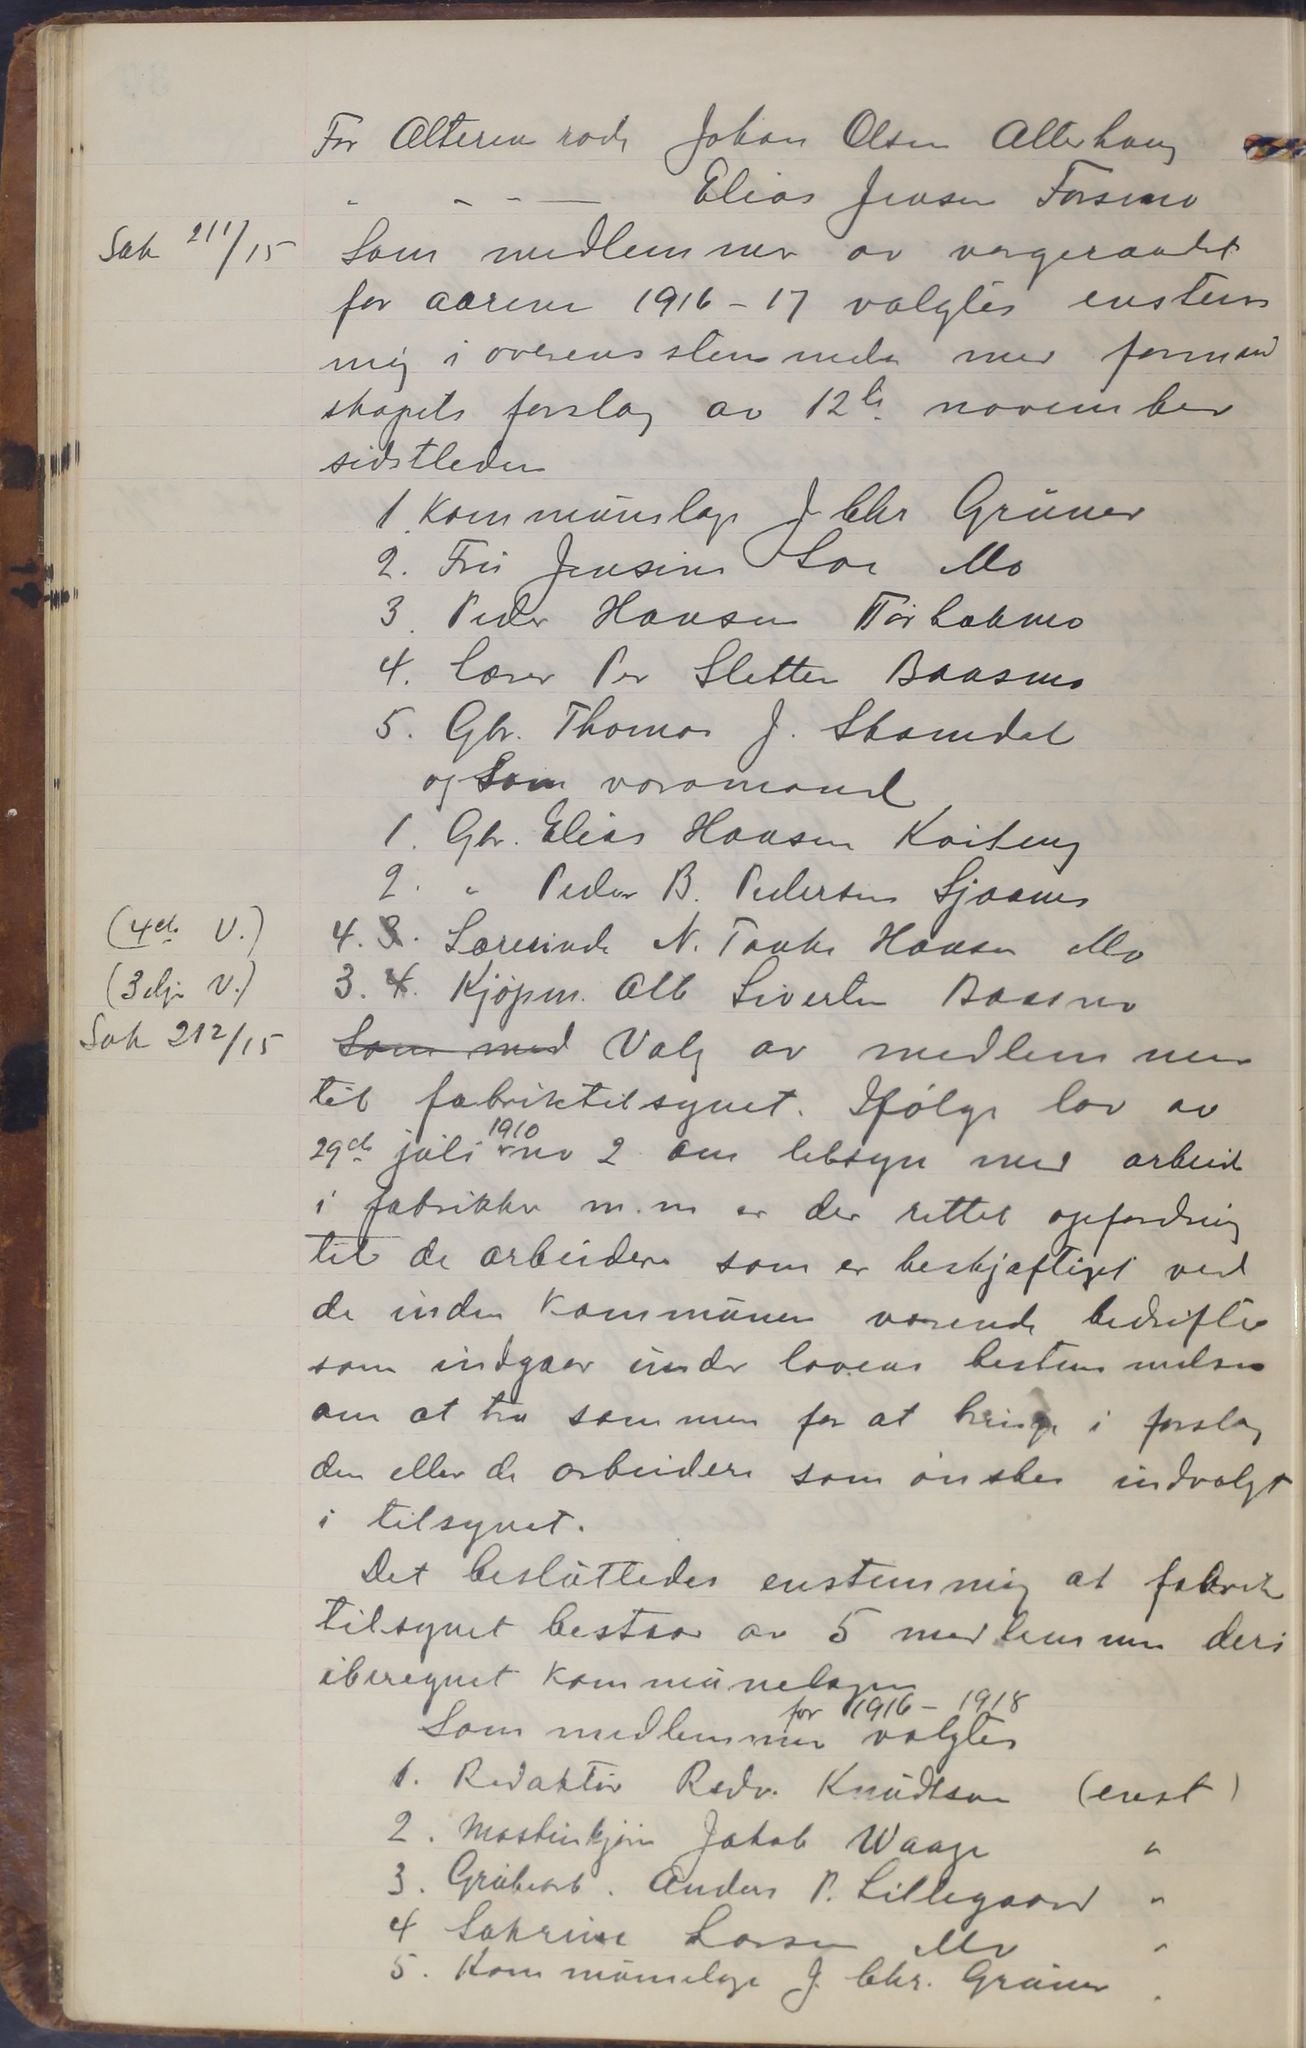 For Alteren rode Johan Olsen Alterhaug
" - - — Elias Jensen Forsmo
Sak 211/15 Som medlemmer av vergeraadet
for aarene 1916-17 valgtes enstem
mig i overensstemmelse med formand
skapets forslag av 12te november
sidstleden
1. Kommunelæge J. Chr Grüner
2. Fru Jensine Mo
3. Peder Hansen
4. Lærer Per Sletten Baasmo
5. Gbr. Thomas J. Skamdal
og Som varamænd
1. Gbr. Elias Hansen
2. " Peder B. Pedersen Sjaamo
(4de V.) 4. 3. Lærerinde N. Tanke Hansen Mo
(3dje V.) 3. 4. Kjøpm. Alb Sivertsen Baasmo
Sak 212/15 Som med Valg av medlemmer
til fabriktilsynet. Ifølge lov av
29de juli 1910 no 2 om tilsyn med arbeid
i fabrikker m.m er der rettet opfordring
til de arbeidere som er beskjæftiget ved
de inden kommunen værende bedrifter
som indgaar under lovens bestemmelser
om at træ sammen for at bringe i forslag
den eller de arbeidere som ønskes indvalgt
i tilsynet.
Det besluttedes enstemmig at fabrik
tilsynet bestaar av 5 medlemmer deri
iberegnet kommunelægen
for 1916-1918
Som medlemmer valgtes
1. Redaktør Redv. Knudtsen (enst)
2. Maskinkjører Jakob Waage "
3. Grubearb. Anders P. Lillegaard "
4 Sakrine Larsen Mo "
5. Kommunelæge J. Chr. Grüner "